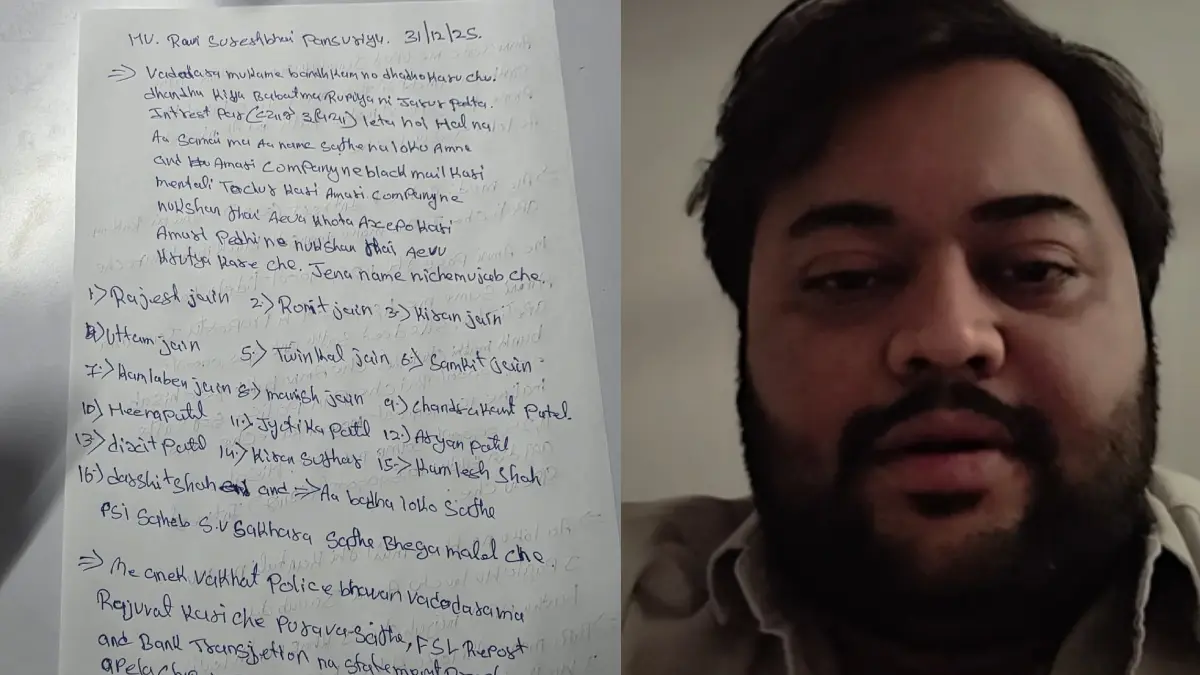 HU. Ravi Sureshbhai Pansuriya. 31/12/25.
=> Vadodara mukame bandhkam no dhandho karu chu.
dhandha kiya Babatma Rupiya ni Jarur padta.
Intrest Par (વ્યાજ ઉપર) leta hal na
Aa samai ma Aa name sathe na loko Amne
and Amari Company ne black mail kari
mentali Torchur kari Amari company ne
nukshan thai Aeva khota Axepo kari
Amari Pedhi ne nukshan thai Aevu
krutya kare che. Jena name nichemujab che.
1> Rajesh jain 2> Ronit jain 3> Kiran jain
4> Uttam jain 5.> Twinkal jain 6.> Samkit jain
7.> Kamlaben jain 8.> manish jain 9.> Chandrakant Patel
10> Heerapatel 11.> Jyotika Patel 12.> Aryan patel
13> dixit Patel 14.> Kiran Suthar 15.> Kamlesh Shah
16.> darshit shah and => Aa badha loko sathe
PSI Saheb S.V Sakhara sathe Bhega malel che.
=> Me anek vakhat Police bhavan Vadodara ma
Rajuvat kari che Purava-Sathe, FSL Report
and Bank Transjetion na statement
apela che